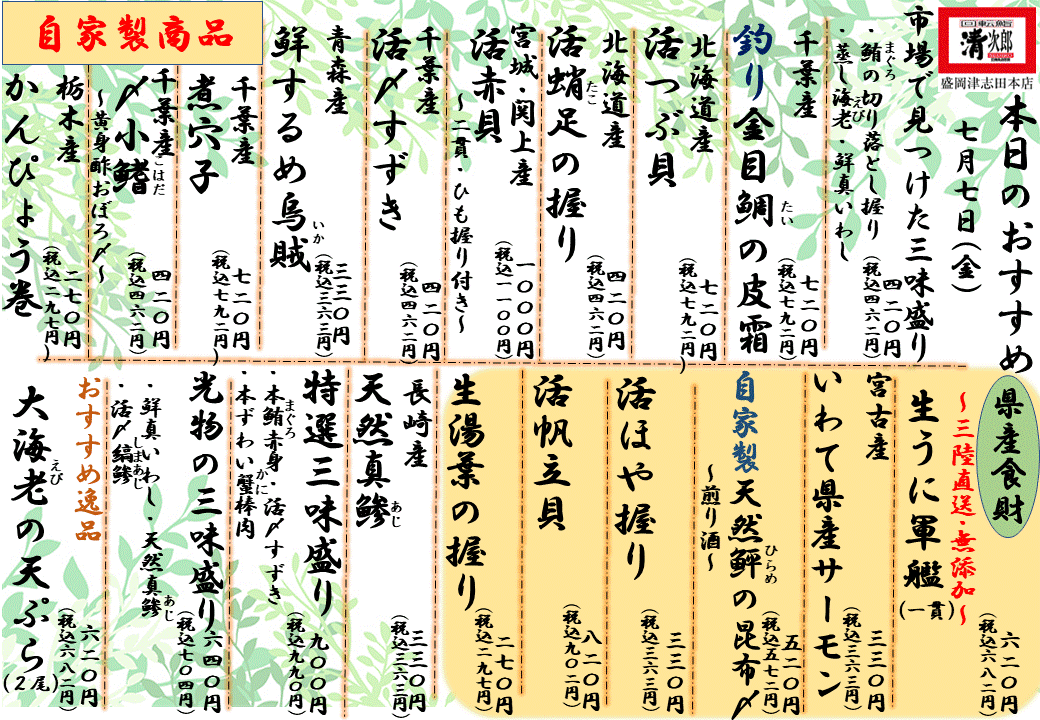 回転鮨
清次郎
盛岡津志田本店
本日のおすすめ
七月七日(金)
市場で見つけた三味盛り
・鮪の切り落とし握り
まぐろ
・蒸し海老・鮮真いわし
えび
四二〇円
(税込四六二円)
千葉産
釣り金目鯛の皮霜
たい
七二〇円
(税込七九二円)
北海道産
活つぶ貝
七二〇円
(税込七九二円)
北海道産
活蛸足の握り
たこ
四二〇円
(税込四六二円)
宮城・閖上産
活赤貝
~二貫・ひも握り付き~
一〇〇〇円
(税込一一〇〇円)
千葉産
活〆すずき
四二〇円
(税込四六二円)
青森産
鮮するめ烏賊
いか
三三〇円
(税込三六三円)
千葉産
煮穴子
七二〇円
(税込七九二円)
千葉産
〆小鰭
こはだ
~黄身酢おぼろ〆~
四二〇円
(税込四六二円)
栃木産
かんぴょう巻
二七〇円
(税込二九七円)
自家製商品
県産食財
~三陸直送・無添加~
生うに軍艦
(一貫)
六二〇円
(税込六八二円)
宮古産
いわて県産サーモン
三三〇円
(税込三六三円)
自家製天然鮃の昆布〆
ひらめ
~煎り酒~
五二〇円
(税込五七二円)
活ほや握り
三三〇円
(税込三六三円)
活帆立貝
八二〇円
(税込九〇二円)
生湯葉の握り
二七〇円
(税込二九七円)
長崎産
天然真鯵
あじ
三三〇円
(税込三六三円)
特選三味盛り
・本鮪赤身・活〆すずき
まぐろ
・本ずわい蟹棒肉
かに
九〇〇円
(税込九九〇円)
光物の三味盛り
・鮮真いわし・天然真鯵
あじ
・活〆縞鯵
しまあじ
六四〇円
(税込七〇四円)
おすすめ逸品
大海老の天ぷら
えび
(2尾)
六二〇円
(税込六八二円)